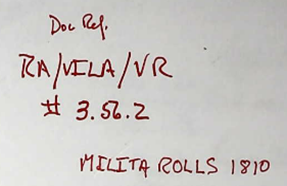 Doc Ref.
RA/VILA/VR
# 3.56.2
MILITA ROLLS 1810